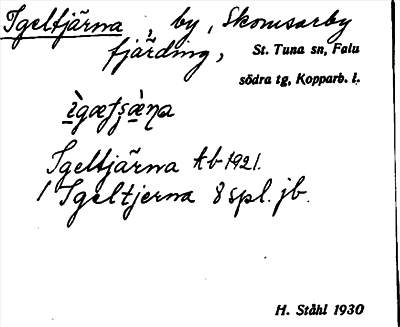 Igeltjärna, by, Skomsarby
fjärding, St. Tuna sn, Falu
södra tg, Kopparb. l.
Igeltjärna kb 1921.
/ Igeltjerna 8 spl. jb.
H. Ståhl 1930